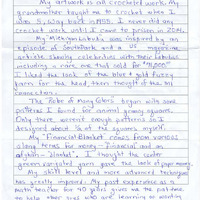 My artwork is all crocheted work. My
grandmother taught me to crochet when I
was 5, way back in 1955. I never did any
crochet work until I came to prison in 2014.
My was inspired by an
episode of South Park and a US magazine
article sharing celebrities with these
including a rare one that sold for
I liked the look of the blue & gold fuzzy
yarn for the head then thought of the
connection.
The Robe of Many Colors began with some
patterns I found for animal granny squares.
Only there weren't enough patterns so I
designed about of the squares myself.
My "Financial Blanket" comes from various
slang terms for money - financial and an
afghan = blanket. I thought the color
green variegated yarn gave the look of paper money.
My skill level and more advanced techniques
has greatly improved. My past experience as a
math teacher for 40 years gives me the patience
to help other who are learning or wanting